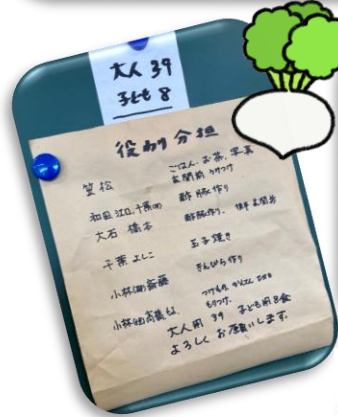 大人 39
子ども 8
役割分担
笠松 ごはん、お茶、写真
玄関前 受つけ
和田 江口、千葉 酢豚作り
大石 橋本 酢豚作り、
千葉よしこ 玉子焼き
小林 斎藤 きんぴら作り
小林 高義 つけもの
もりつけ、
大人用 39 子ども用 8食
よろしくお願いします。